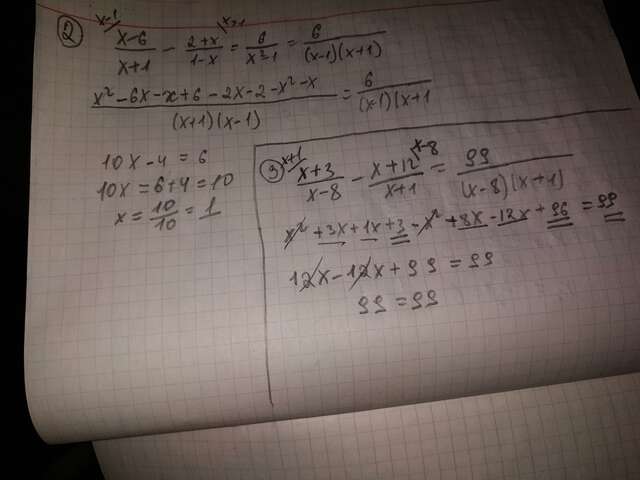 2
x-1 x+1
(x-6)/(x+1) - (2+x)/(1-x) = 6/(x²-1) = 6/((x-1)(x+1))
(x²-6x-x+6-2x-2-x²-x)/((x+1)(x-1)) = 6/((x-1)(x+1
10x-4=6
10x=6+4=10
x=10/10=1
3
x+1 x-8
(x+3)/(x-8) - (x+12)/(x+1) = 99/((x-8)(x+1))
x²+3x+1x+3-x²+8x-12x+96=99
12x-12x+99=99
99=99